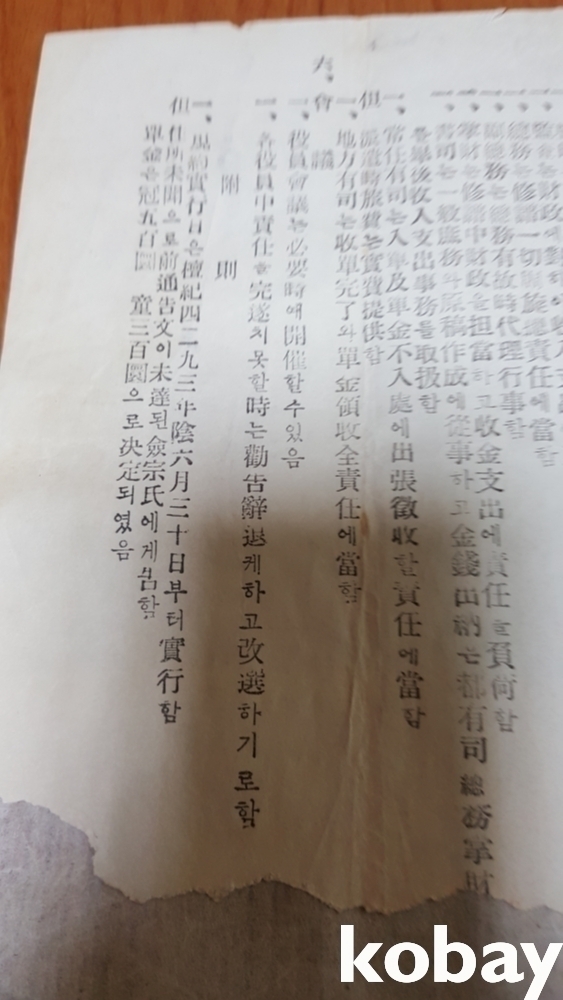 總務는修譜一切周旋總責任에當함
總務는總務有故時代理行事함
掌財는修譜中財政을担當하고收金支出에責任을負荷함
書司는一般庶務와原稿作成에從事하고金錢出納은都有司總務掌財
畢後收入支出事務를取扱함
一、常任有司는入單及單金不入處에出張徵收할責任에當함
但 派遣時旅費는實費提供함
一、地方有司는收單完了와單金領收全責任에當함
六、會議
一、役員會議는必要時에開催할수있음
一、各役員中責任을完遂치못할時는勸告辭退케하고改選하기로함
附則
一、規約實行日은檀紀四二九三年陰六月三十日부터實行함
但 住所未聞으로前通告文이未達된僉宗氏에게
單金은冠五百圜 童三百圜으로決定되였음
kobay